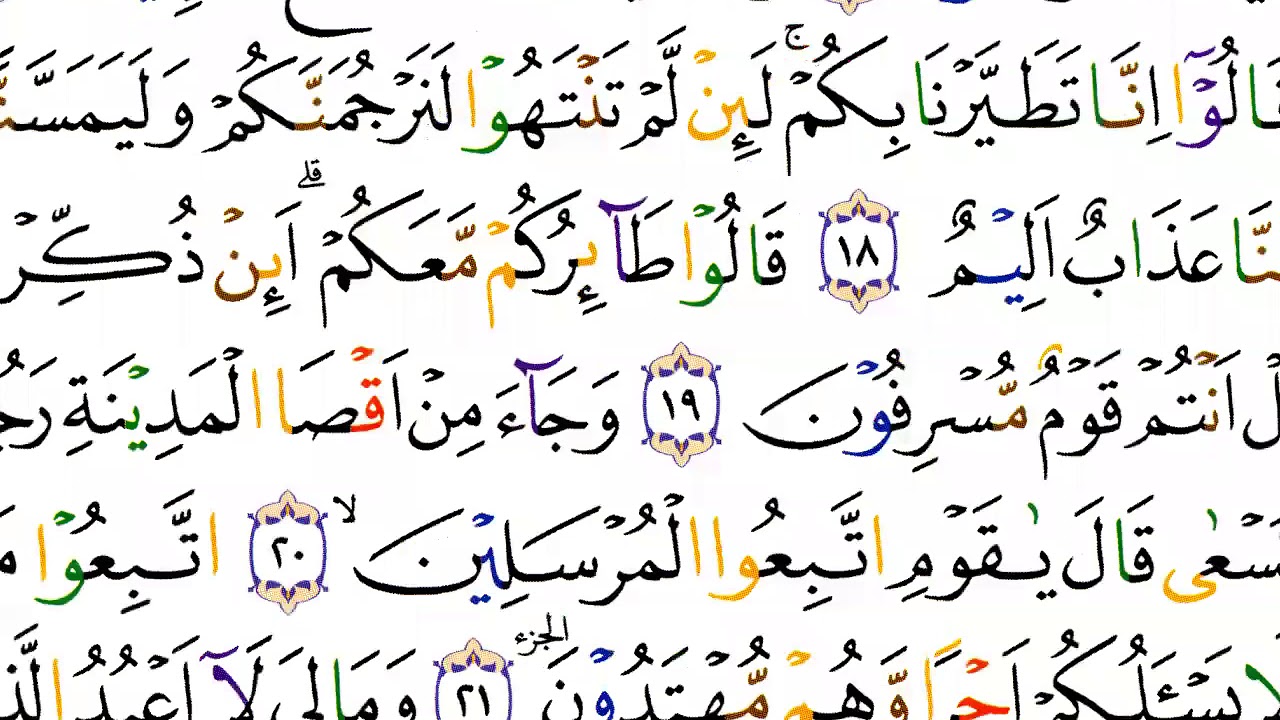 قَالُوْٓا اِنَّا تَطَيَّرْنَا بِكُمْ ۚ لَىِٕنْ لَّمْ تَنْتَهُوْا لَنَرْجُمَنَّكُمْ وَلَيَمَسَّنَّ
نَّا عَذَابٌ اَلِيْمٌ ١٨ قَالُوْا طَآىِٕرُكُمْ مَّعَكُمْ ۗ اَىِٕنْ ذُكِّرْ
لْ اَنْتُمْ قَوْمٌ مُّسْرِفُوْنَ ١٩ وَجَآءَ مِنْ اَقْصَا الْمَدِيْنَةِ رَجُ
سْعٰى قَالَ يٰقَوْمِ اتَّبِعُوا الْمُرْسَلِيْنَ ۙ ٢٠ اتَّبِعُوْا مَ
لَا يَسْـَٔلُكُمْ اَجْرًا وَّهُمْ مُّهْتَدُوْنَ الجزء ٢١ وَمَا لِيَ لَآ اَعْبُدُ الَّذِ